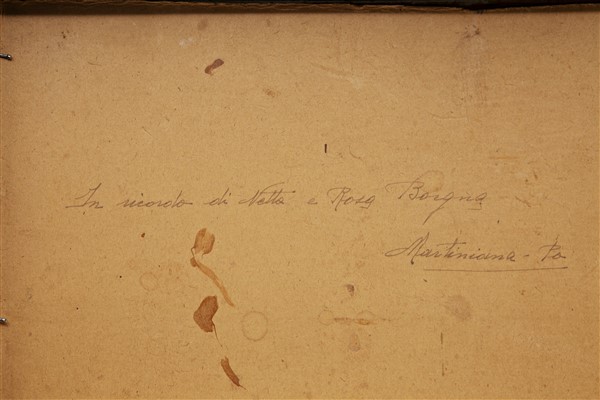 In ricordo di Netta e Rosa Borgna
Martiniana - Po